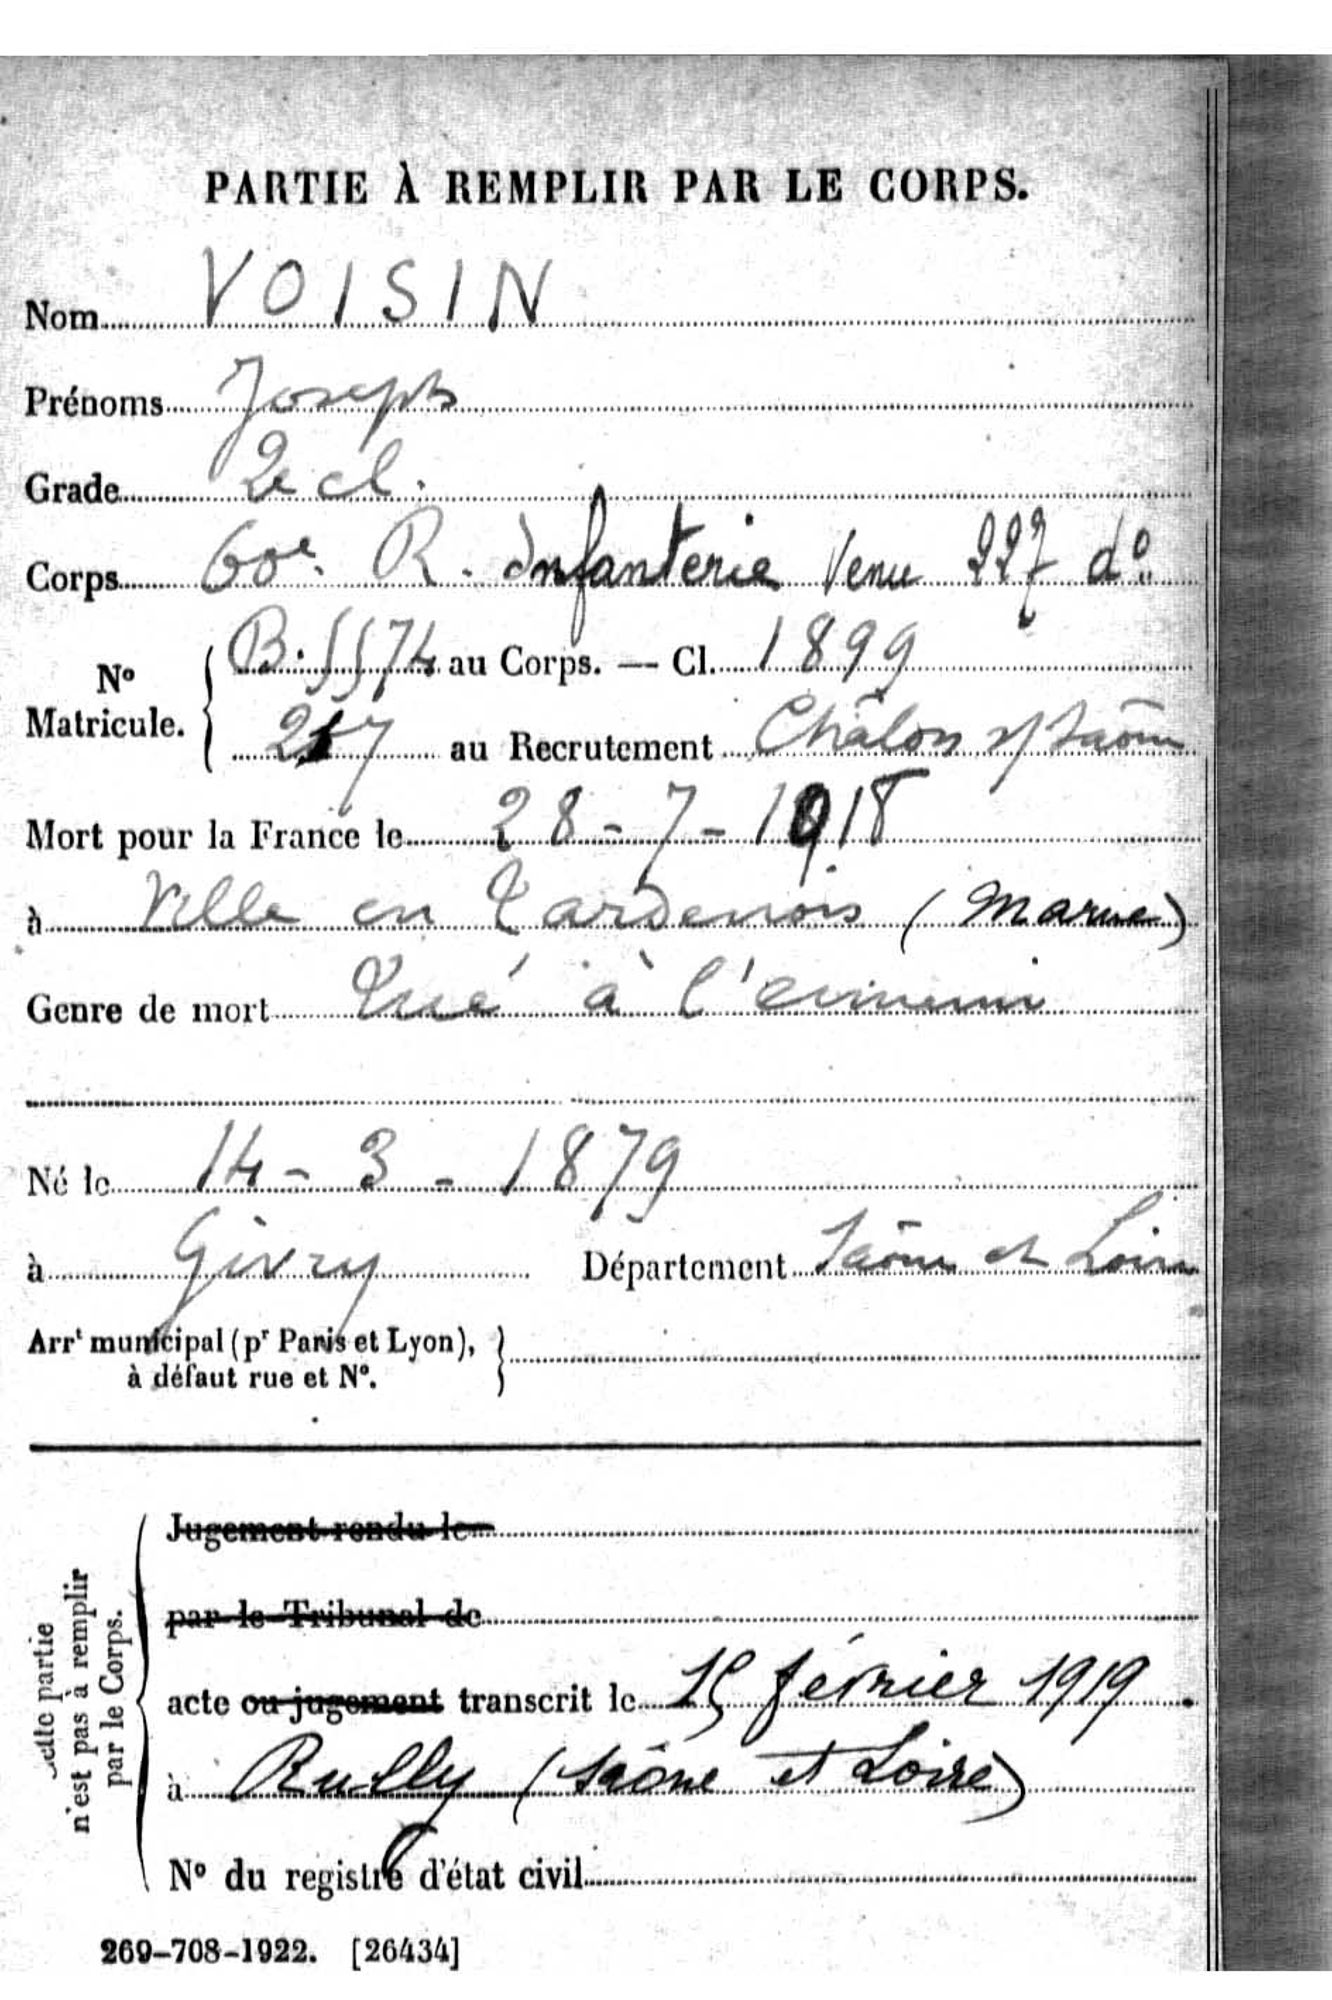 PARTIE À REMPLIR PAR LE CORPS.
Nom VOISIN
Prénoms Joseph
Grade 2e cl.
Corps 60e. R. Infanterie Venu 227 do
No
Matricule.
B. 5574 au Corps. — Cl. 1899
217 au Recrutement Châlon s/ Saône
Mort pour la France le 28 - 7 - 1918
à Ville en Tardenois (Marne)
Genre de mort Tué à l'ennemi
Né le 14 - 3 - 1879
à Givry Département Saône et Loire
Arrt municipal (pr Paris et Lyon),
à défaut rue et No.
Cette partie
n'est pas à remplir
par le Corps.
Jugement rendu le
par le Tribunal de
acte ou jugement transcrit le 15 février 1919.
à Rully (Saône et Loire)
No du registre d'état civil
269-708-1922. [26434]